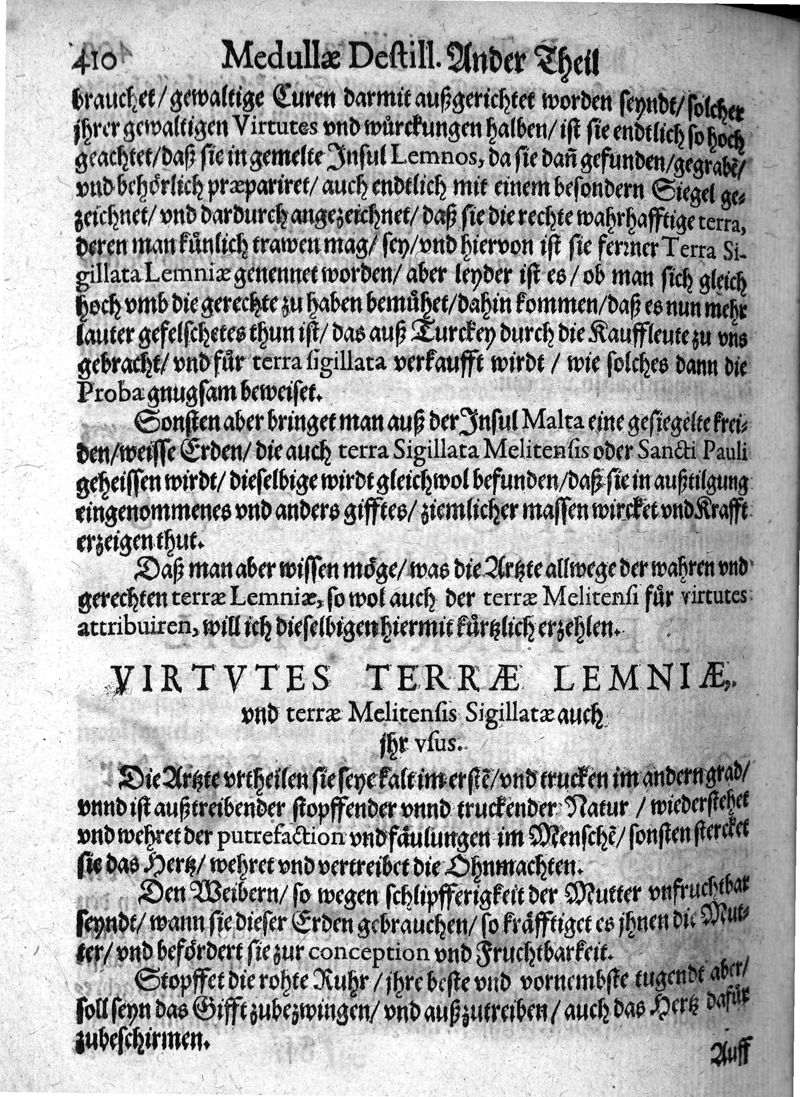 410 Medullæ Destill. Ander Theil
brauchet/ gewaltige Curen darmit außgerichtet worden seyndt/ solcher
jhrer gewaltigen Virtutes vnd wůrckungen halben/ ist sie endtlich so hoch
geachtet/ daß sie in gemelte Insul Lemnos, da sie dañ gefunden/ gegrabẽ/
vnd behörlich præpariret/ auch endtlich mit einem besondern Siegel ge-
zeichnet/ vnd dardurch angezeichnet/ daß sie die rechte wahrhafftige terra,
deren man kůnlich trawen mag/ sey/ vnd hiervon ist sie ferrner Terra Si-
gillata Lemniæ genennet worden/ aber leyder ist es/ ob man sich gleich
hoch vmb die gerechte zu haben bemůhet/ dahin kommen/ daß es nun mehr
lauter gefelschetes thun ist/ das auß Turckey durch die Kauffleute zu vns
gebracht/ vnd fůr terra sigillata verkaufft wirdt / wie solches dann die
Proba gnugsam beweiset.
Sonsten aber bringet man auß der Insul Malta eine gesiegelte krei-
den/ weisse Erden/ die auch terra Sigillata Melitensis oder Sancti Pauli
geheissen wirdt/ dieselbige wirdt gleichwol befunden/ daß sie in außtilgung
eingenommenes vnd anders gifftes/ ziemlicher massen wircket vnd Krafft
erzeigen thut.
Daß man aber wissen möge/ was die Artzte allwege der wahren vnd
gerechten terræ Lemniæ, so wol auch der terræ Melitensi fůr virtutes
attribuiren, will ich dieselbigen hiermit kůrtzlich erzehlen.
VIRTVTES TERRÆ LEMNIÆ,
vnd terræ Melitensis Sigillatæ auch
jhr vsus.
Die Artzte vrtheilen sie seye kalt im erstẽ/ vnd trucken im andern grad/
vnnd ist außtreibender stopffender vnnd truckender Natur / wiederstehet
vnd wehret der putrefaction vnd fäulungen im Menschẽ/ sonsten stercket
sie das Hertz/ wehret vnd vertreibet die Ohnmachten.
Den Weibern/ so wegen schlipfferigkeit der Mutter vnfruchtbar
seyndt/ wann sie dieser Erden gebrauchen/ so kräfftiget es jhnen die Mut-
ter/ vnd befördert sie zur conception vnd Fruchtbarkeit.
Stopffet die rohte Ruhr/ jhre beste vnd vornembste tugendt aber/
soll seyn das Gifft zubezwingen/ vnd außzutreiben/ auch das Hertz dafůr
zubeschirmen.
Auff